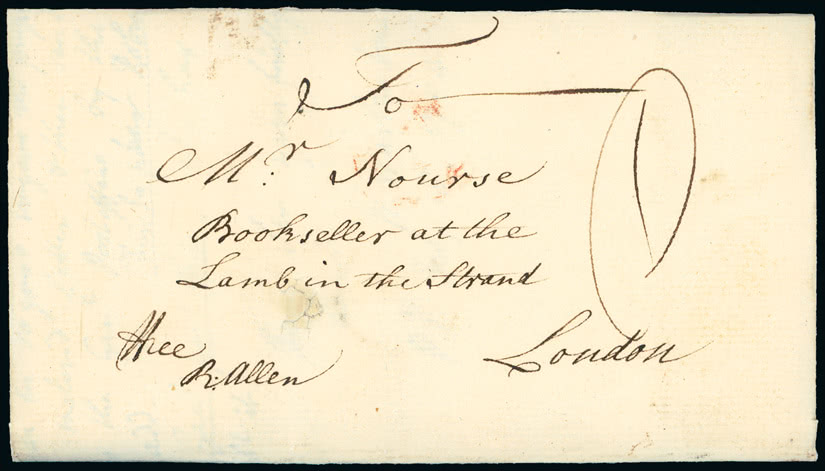 To
Mr. Nourse
Bookseller at the
Lamb in the Strand
London
ffree
R: Allen